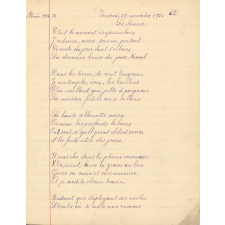 Vendredi 29 novembre
Le Semeur
C'est le moment crépusculaire
J'admire, assis sous un portail
Ce reste de jour dont s'éclaire
La dernière heure du travail
Dans les terres, de nuit baignées
Je contemple, ému, les haillons
D'un vieillard qui jette à poignées
La moisson future aux sillons
Sa haute silhouette noire
Domine les profonds labours
On sent à quel point il doit croire
A la fuite utile des jours
Il marche dans la plaine immense
Va, vient, lance la graine au loin
Rouvre sa main et recommence
Et je médite obscur témoin
Pendant que déployant ses voiles
L'ombre où se mêle une rumeur